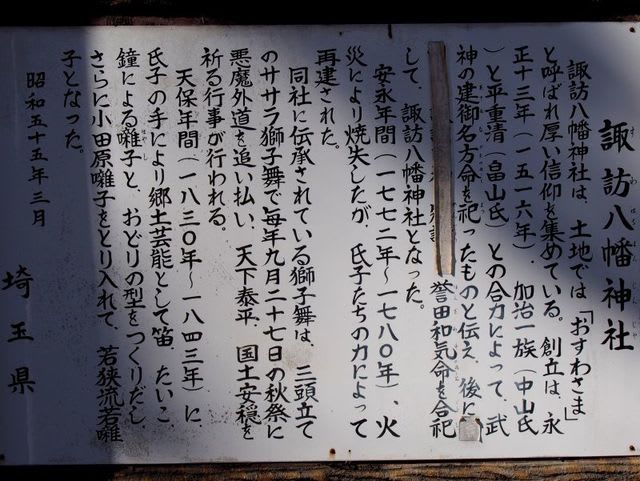 諏訪八幡神社
諏訪八幡神社は、土地では「おすわさま」
と呼ばれ厚い信仰を集めている。創立は、永
正十三年(一五一六年) 加治一族(中山氏
)と平重清(畠山氏)との合力によって、武
神の建御名方命を祀ったものと伝え、後に
誉田和気命を合祀
して、諏訪八幡神社となった。
安永年間(一七七二年〜一七八〇年)、火
災により焼失したが、氏子たちの力によって
再建された。
同社に伝承されている獅子舞は、三頭立て
のササラ獅子舞で毎年九月二十七日の秋祭に
悪魔外道を追い払い、天下泰平、国土安穏を
祈る行事が行われる。
天保年間(一八三〇年〜一八四三年)に、
氏子の手により郷土芸能として笛、たいこ、
鐘による囃子と、おどりの型をつくりだし、
さらに小田原囃子をとり入れて、若狭流若囃
子となった。
昭和五十五年三月
埼玉県